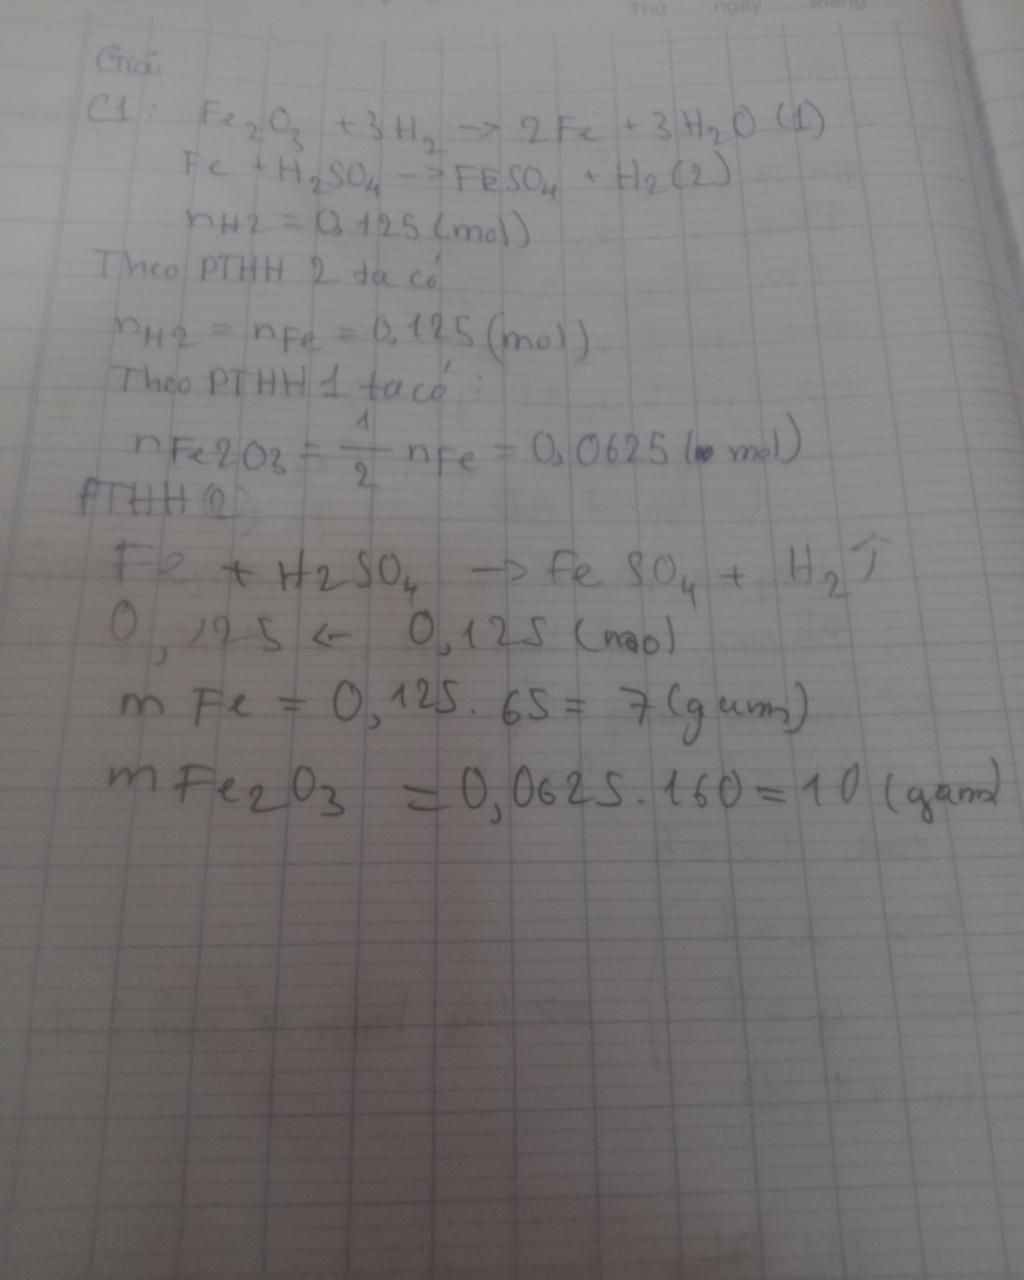 Thứ ngày tháng
Giải
C1: Fe2O3 + 3H2 -> 2Fe + 3H2O (1)
Fe + H2SO4 -> FESO4 + H2 (2)
nH2 = 0,125 (mol)
Theo PTHH 2 ta có
nH2 = nFe = 0,125 (mol)
Theo PTHH 1 ta có:
nFe2O3 = 1/2 nFe = 0,0625 (mol)
PTHH (2)
Fe + H2SO4 -> FeSO4 + H2↑
0,125 <- 0,125
m Fe = 0,125 . 65 = 7 (gam)
m Fe2O3 = 0,0625 . 160 = 10 (gam)